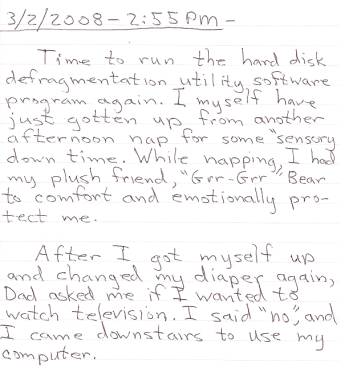 3/2/2008 - 2:55 PM -
Time to run the hard disk
defragmentation utility software
program again. I myself have
just gotten up from another
afternoon nap for some "sensory
down time. While napping, I had
my plush friend, "Grr-Grr" Bear
to comfort and emotionally pro-
tect me.
After I got myself up
and changed my diaper again,
Dad asked me if I wanted to
watch television. I said "no", and
I came downstairs to use my
computer.